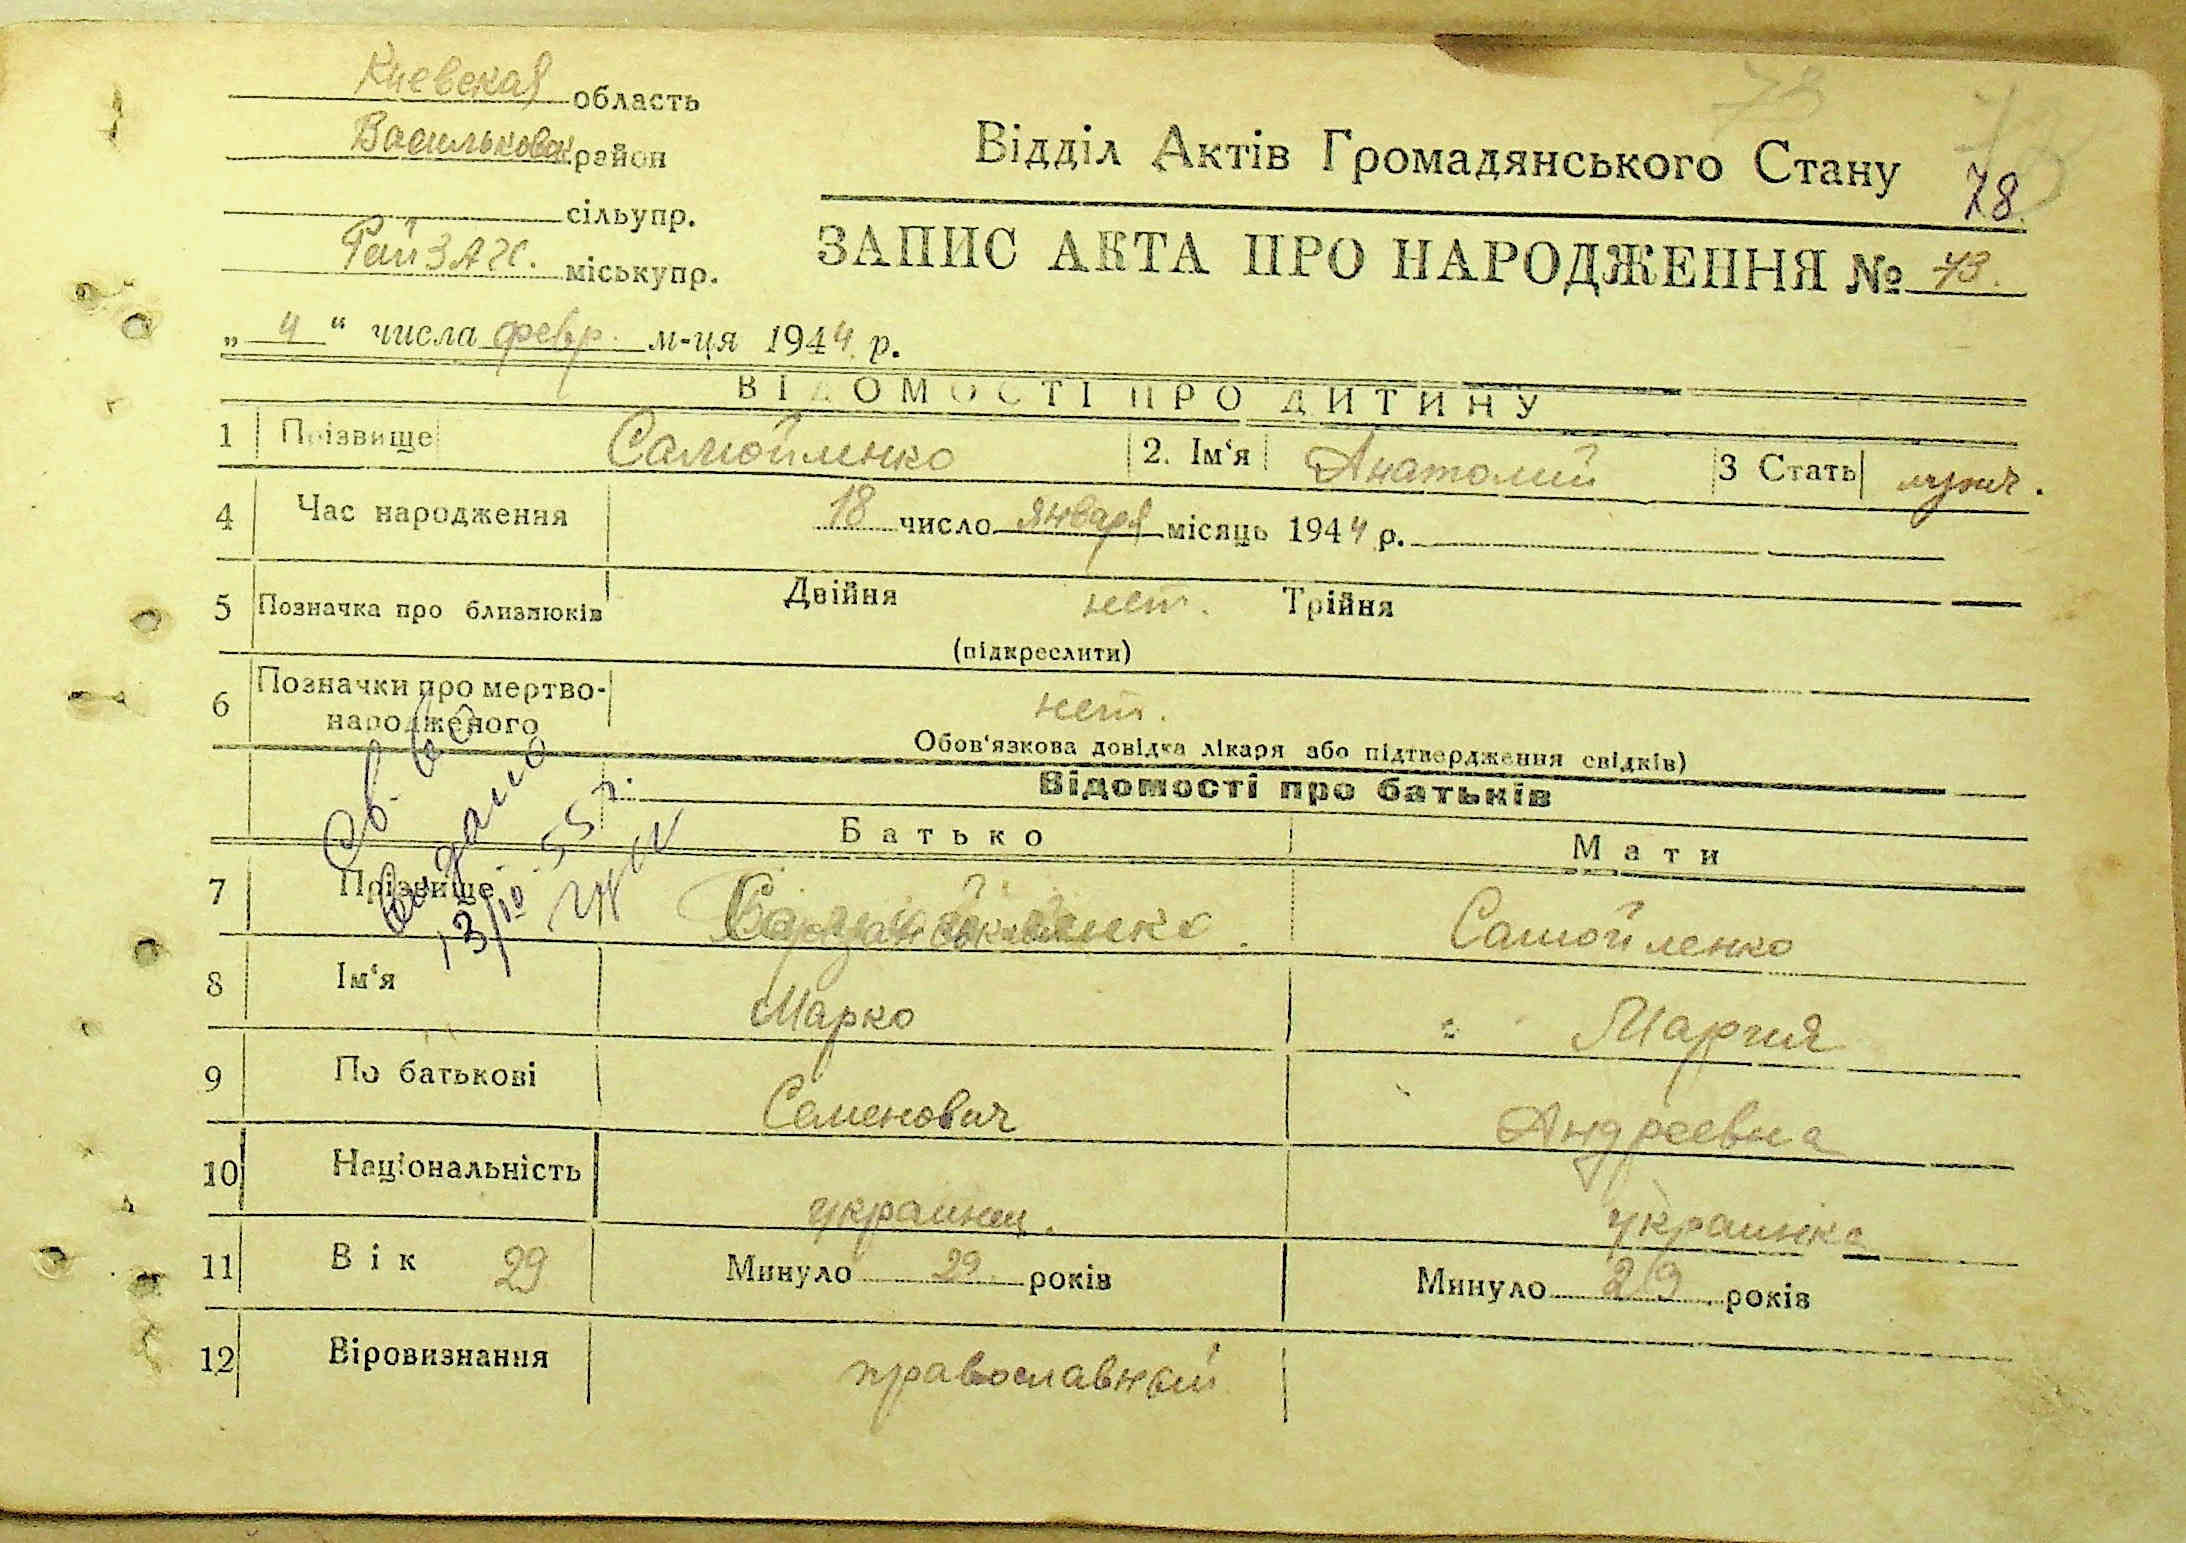 Киевская область
Васильковск район
сільупр.
Рай ЗАГС. міськупр.
Відділ Актів Громадянського Стану 78.
ЗАПИС АКТА ПРО НАРОДЖЕННЯ № 73.
„ 4 “ числа февр. м-ця 1944 р.
ВІДОМОСТІ ПРО ДИТИНУ
1 Прізвище Самойленко 2. Ім‘я Анатолий 3 Стать мужч.
4 Час народження 18 число января місяць 1944 р.
5 Позначка про близнюків Двійня нет. Трійня
(підкреслити)
6 Позначки про мертво-
народженого нет.
Обов‘язкова довідка лікаря або підтвердження свідків)
Відомості про батьків
Батько Мати
Св-во
выдано
13/10 55 г.
7 Прізвище Самойленко
8 Ім‘я Марко Мария
9 По батькові Семенович Андреевна
10 Національність украинец. украинка
11 Вік 29 Минуло 29 років Минуло 29 років
12 Віровизнання православный